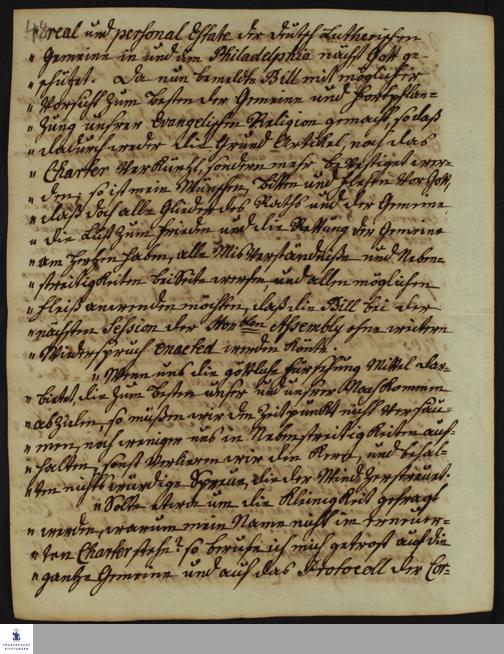 " real und personal Estate der deutsch Lutherischen
" Gemeine in und um Philadelphia nächst Gott ge-
" schützt. Da nun bemeldte Bill mit möglicher
" Vorsicht zum besten der Gemeine und Fortpflan-
" zung unsrer Evangelischen Religion gemacht, so daß
" dadurch weder die Grund Artikel, noch das
" Charter verkürzt, sondern mehr befestiget wer-
" den; so ist mein Wünschen, bitten und flehen vor Gott,
" daß doch alle Glieder des Raths und der Gemeine
" die Lust zum Frieden und die Rettung der Gemeine
" am Herzen haben, alle Misverständniße und Neben-
" streitigkeiten bei Seite werfen und allen möglichen
" Fleiß anwenden möchten, daß die Bill bei der
" nächsten Session der Honblen Assembly ohne weitern
" Wiederspruch enacted werden könte.
" Wenn uns die göttliche Fürsehung Mittel dar-
" bietet, die zum besten unser und unsrer Nachkommen
" abzielen, so müßen wir den Zeitpunkt nicht versäu-
" men, noch weniger uns in Nebenstreitigkeiten auf-
" halten, sonst verlieren wir den Kern, und behal-
" ten nichtswürdige Spreue, die der Wind zerstreuet.
" Solte etwa um die Kleinigkeit gefragt
" werden, warum mein Name nicht im erneuer-
" ten Charter stehe? so berufe ich mich getrost auf die
" gantze Gemeine und auf das Protocoll der Cor-